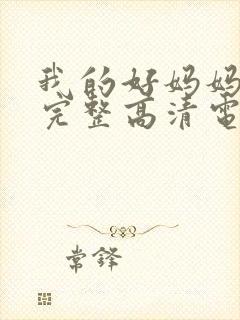 我的好妈妈
完整高清电
常铎